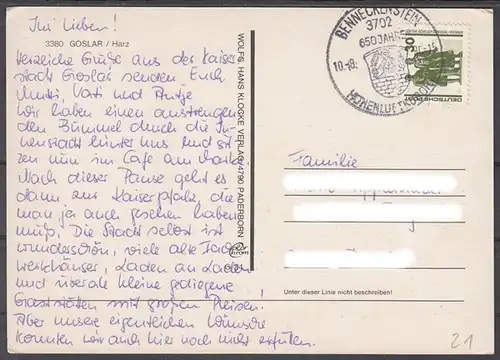 Ihr Lieben!
3380 GOSLAR / Harz
Herzliche Grüße aus der Kaiser
stadt Goslar senden Euch
Mutti, Vati und Antje
Wir haben einen anstrengen
den Bummel durch die In
nenstadt hinter uns und sit
zen nun im Cafe am Markt.
Nach dieser Pause geht es
dann zur Kaiserpfalz, die
man ja auch gesehen haben
muß. Die Stadt selbst ist
wunderschön, viele alte Fach
werkhäuser, Laden an Laden
und überall kleine gediegene
Gaststätten mit großen Preisen!
Aber unsere eigentlichen Wünsche
konnten wir auch hier noch nicht erfüllen.
WOLFG. HANS KLOCKE VERLAG/479K PADERBORN
BENNECKENSTEIN
3702
650 JAHRE
10.-8.
HÖHENLUFTKURORT
30
DEUTSCHE POST
Familie
Unter dieser Linie nicht beschreiben!
21